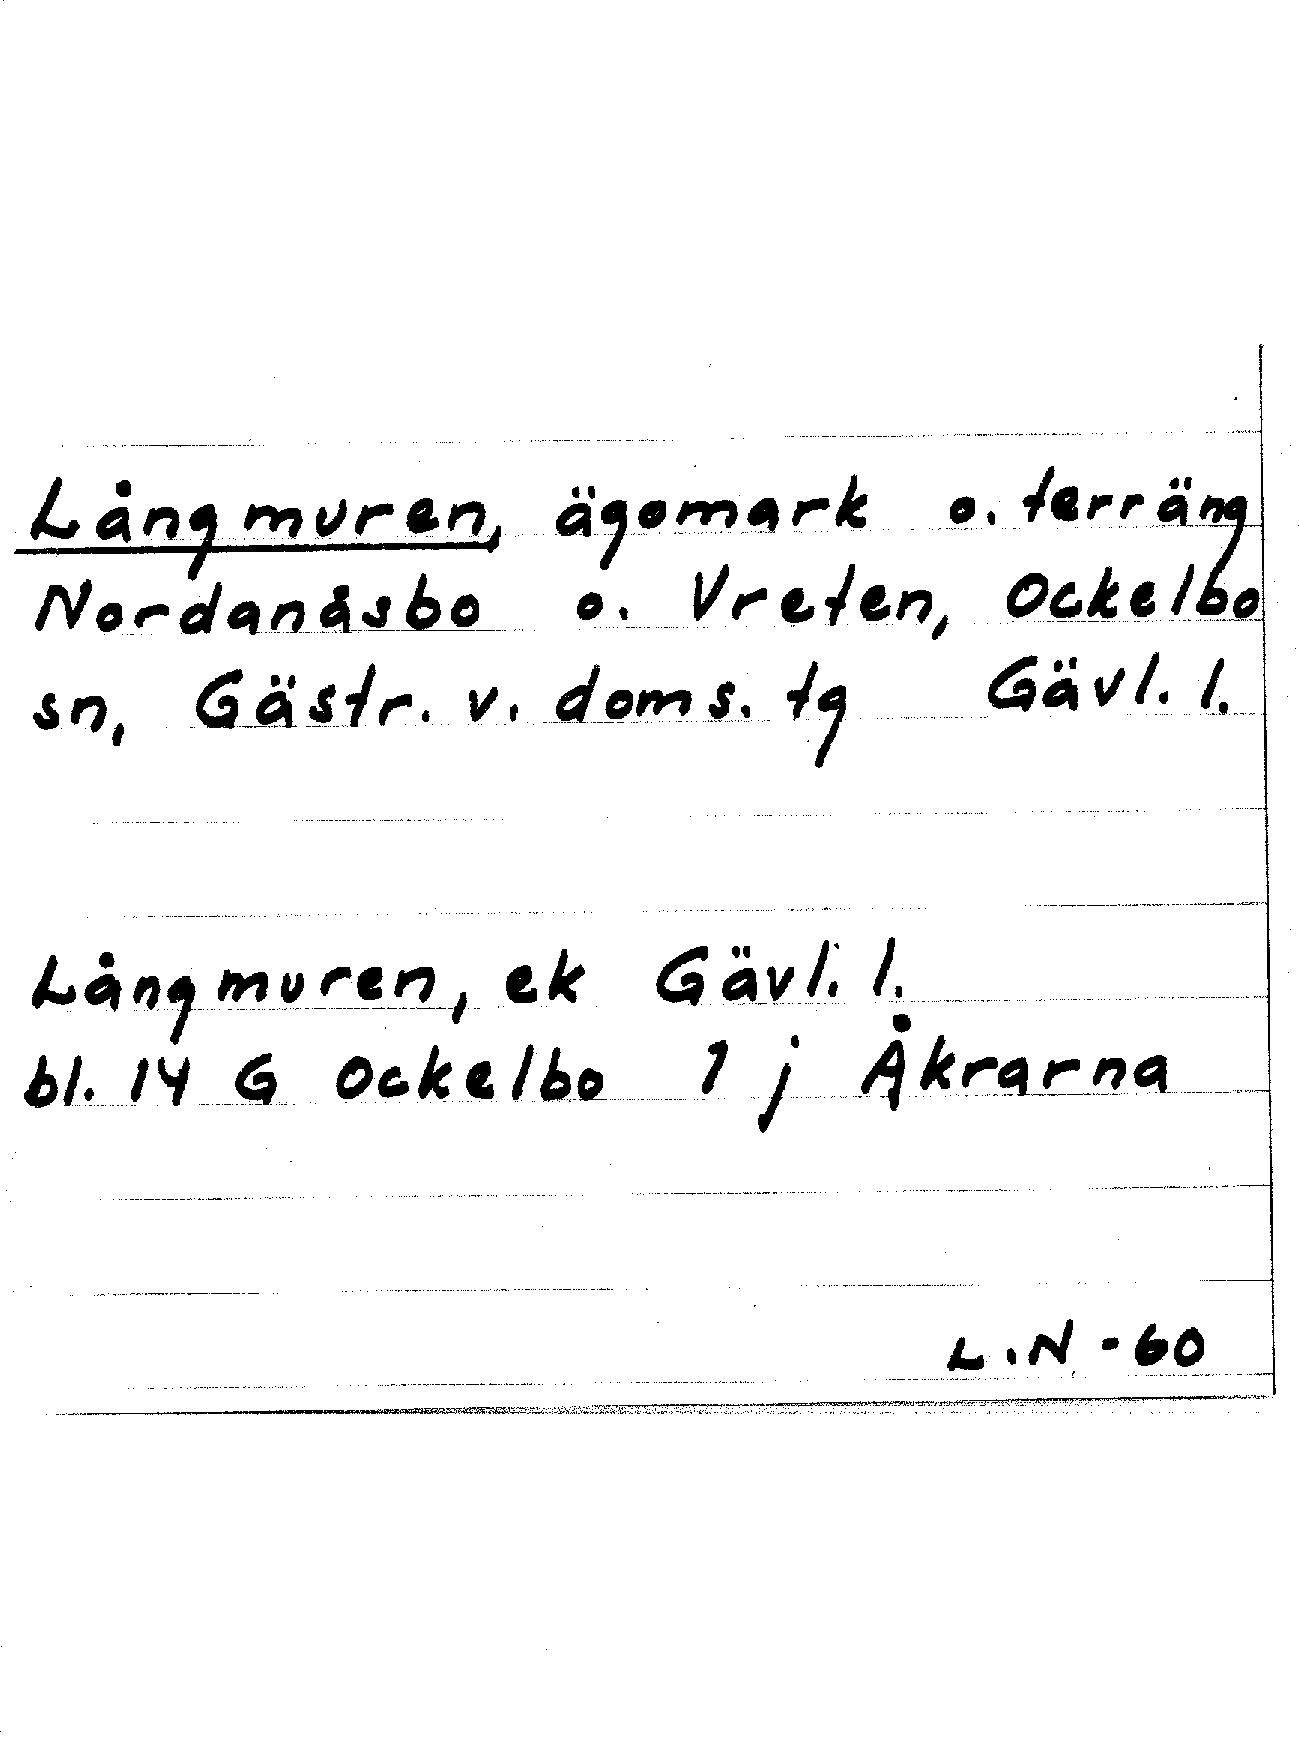 Långmuren, ägomark o. terräng
Nordanåsbo o. Vreten, Ockelbo
sn, Gästr. v. doms. tg Gävl. l.
Långmuren, ek Gävl. l.
bl. 14 G Ockelbo 1 j Åkrarna
L.N - 60